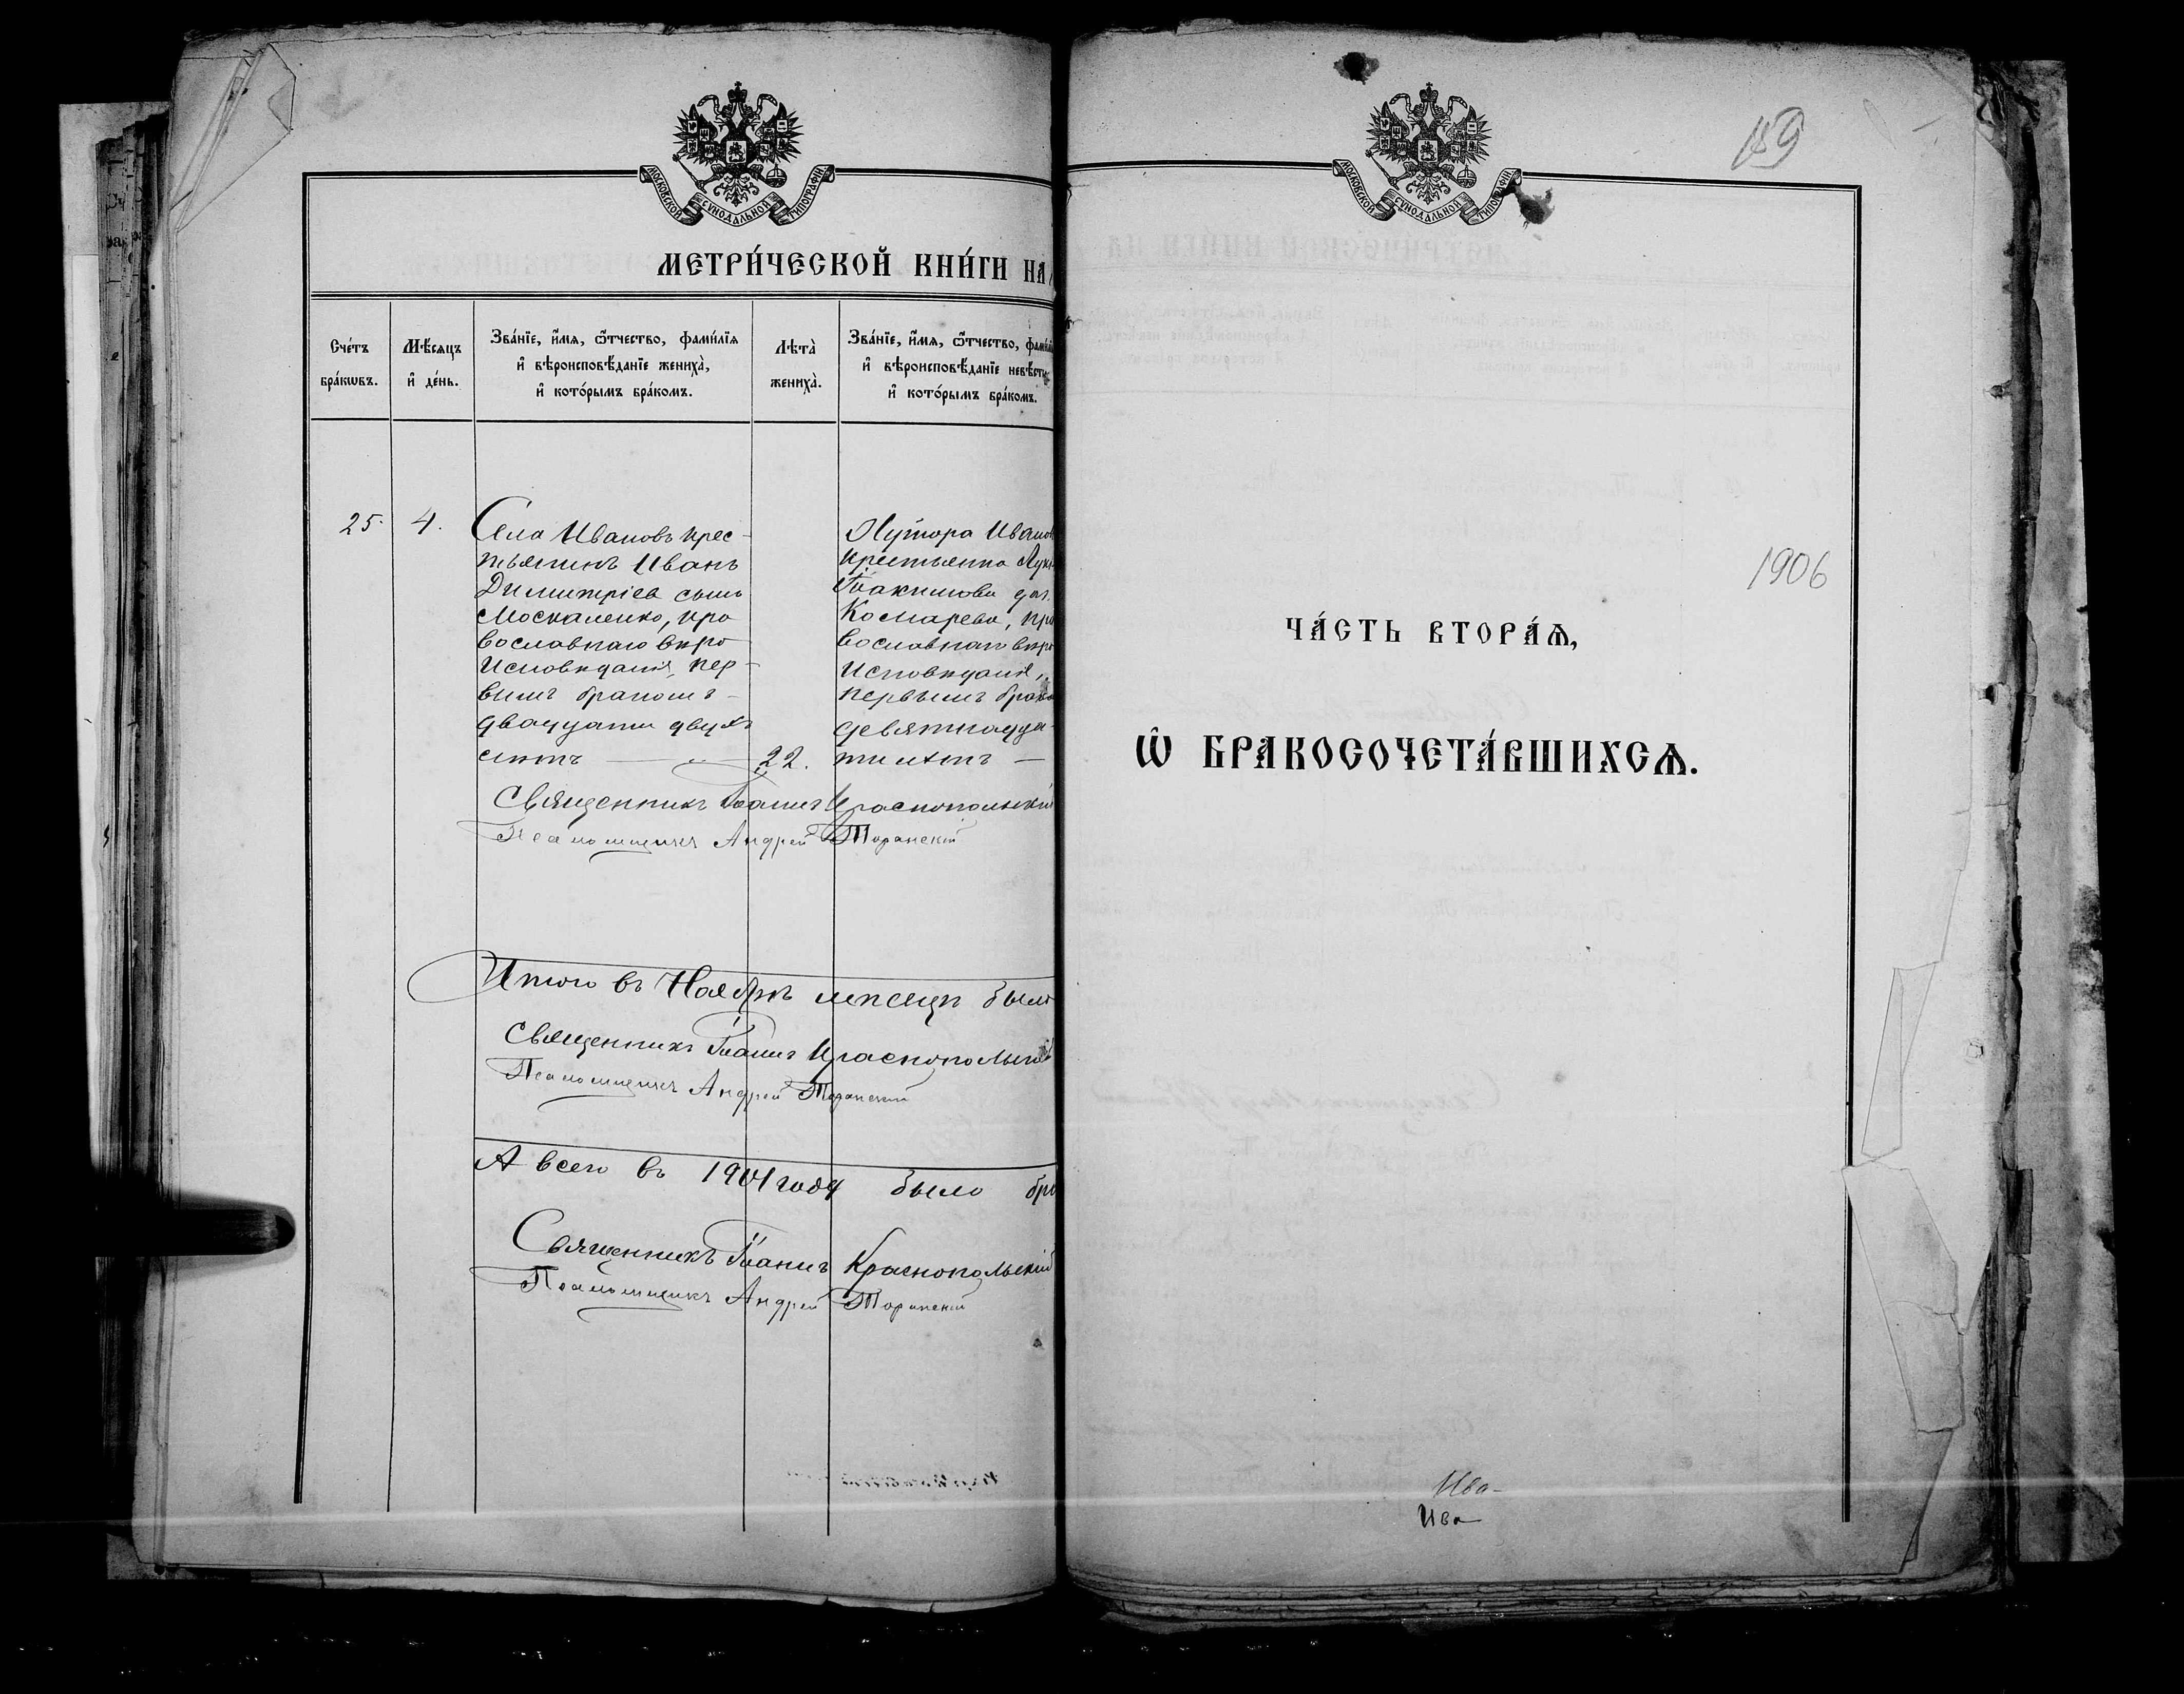 МОСКОВСКОЙ СѴНОДАЛЬНОЙ ТИПОГРАФІИ
МЕТРИ́ЧЕСКОЙ КНИ́ГИ НА
Сче́тъ бра́кωвъ.
Мѣ́сяцъ и҆ де́нь.
Зва́нїе, и҆́мѧ, ѻ҆́тчество, фами́лїѧ
и҆ вѣроисповѣ́данїе жениха̀,
и҆ кото́рымъ бра́комъ.
Лѣта̀ жениха̀.
Зва́нїе, и҆́мѧ, ѻ҆́тчество, фами́лї
и҆ вѣроисповѣ́данїе невѣ́сты
и҆ кото́рымъ бра́комъ.
25. 4.
Села Ивановъ крес-
тьянинъ Иванъ
Димитріев сынъ
Москаленко, пра
вославнаго вѣро
исповѣданія, пер-
вымъ бракомъ -
двадцати двухъ
лѣтъ 22.
Хутора Иванов
крестьянка
Іоакимова доч.
Комарева, пра
вославнаго вѣро
исповѣданія,
первымъ брако
девятнадца-
ти лѣтъ —
Священникъ Іоаннъ Краснопольскій
Псаломщикъ Андрей Торанскій
Итого въ Ноябрѣ мѣсяцѣ было
Священникъ Іоаннъ Краснопольскій
Псаломщикъ Андрей Торанскій
А всего въ 1904 году было бра
Священникъ Іоаннъ Краснопольскій
Псаломщикъ Андрей Торанскій
МОСКОВСКОЙ СѴНОДАЛЬНОЙ ТИПОГРАФІИ
1906
ЧА́СТЬ ВТОРА́Ѧ,
Ѡ҆ БРАКОСОЧЕТА́ВШИХСѦ.
Ива-
Ива-